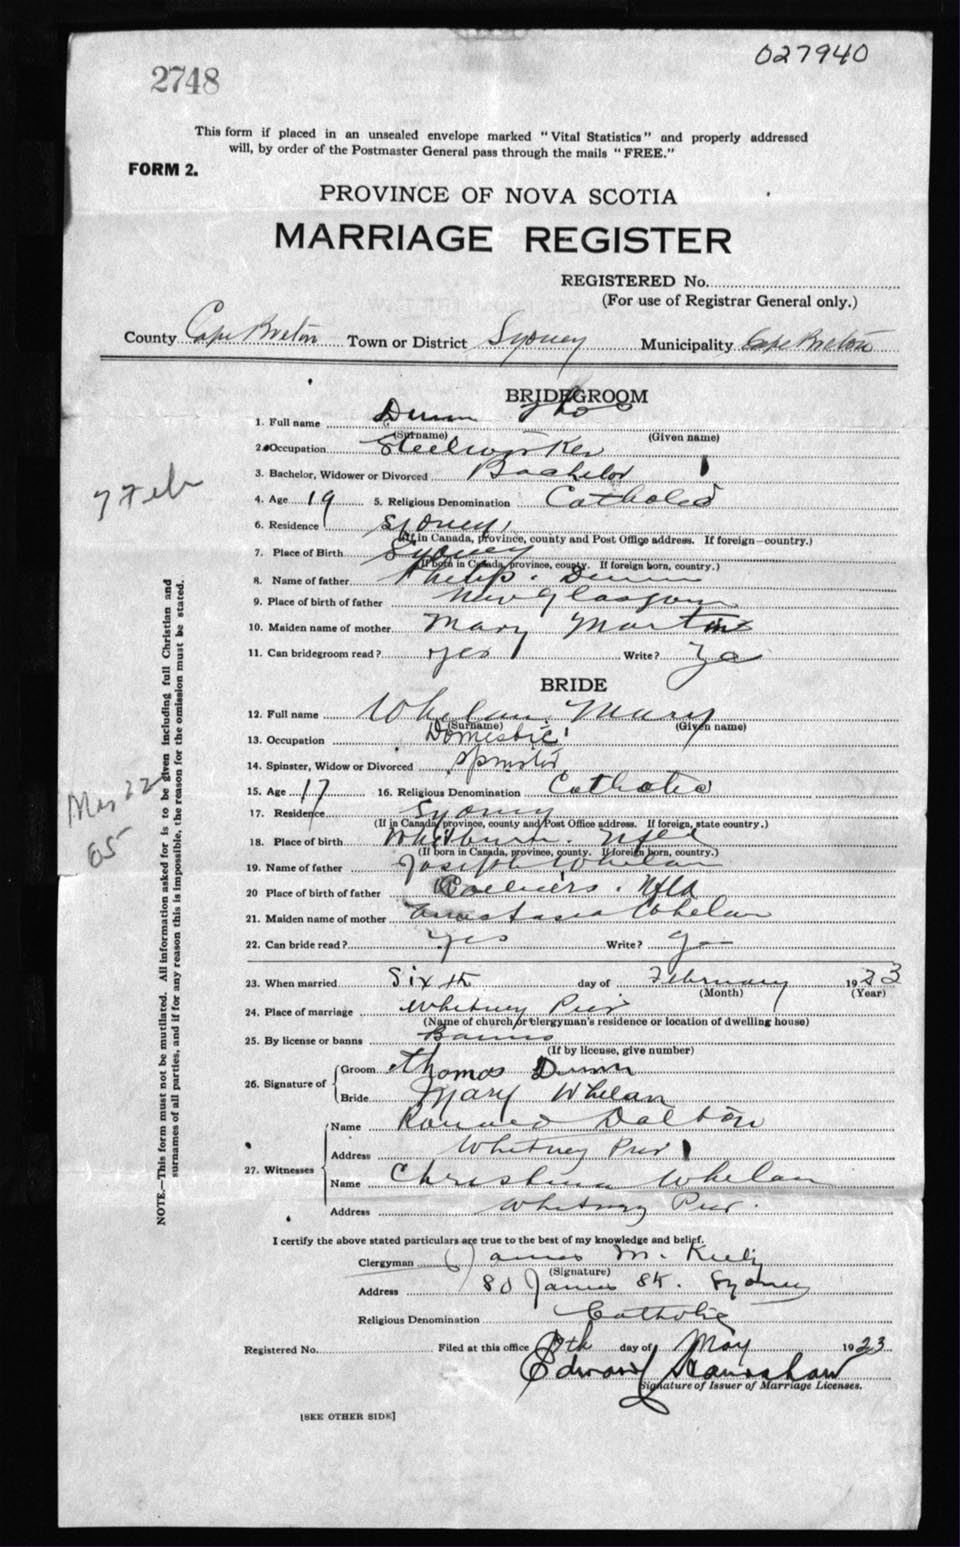 027940
2748
This form if placed in an unsealed envelope marked "Vital Statistics" and properly addressed
will, by order of the Postmaster General pass through the mails "FREE."
FORM 2.
PROVINCE OF NOVA SCOTIA
MARRIAGE REGISTER
REGISTERED No.
(For use of Registrar General only.)
County Cape Breton Town or District Sydney Municipality Cape Breton
BRIDEGROOM
1. Full name Dunn Thos
(Surname) (Given name)
2. Occupation Steelworker
3. Bachelor, Widower or Divorced Bachelor
7 Feb
4. Age 19 5. Religious Denomination Catholic
6. Residence Sydney
(If in Canada, province, county and Post Office address. If foreign—country.)
7. Place of Birth Sydney
(If born in Canada, province, county. If foreign born, country.)
8. Name of father Philip Dunn
9. Place of birth of father New Glasgow
10. Maiden name of mother Mary Martin
11. Can bridegroom read? yes Write? Ya
BRIDE
12. Full name Whelan Mary
(Surname) (Given name)
13. Occupation Domestic
14. Spinster, Widow or Divorced Spinster
15. Age 17 16. Religious Denomination Catholic
17. Residence Sydney
(If in Canada, province, county and Post Office address. If foreign, state country.)
18. Place of birth Whitburn. Nfld
(If born in Canada, province, county. If foreign born, country.)
19. Name of father Joseph Whelan
20 Place of birth of father Colliers. Nfld
21. Maiden name of mother Anastasia Whelan
22. Can bride read? Yes Write? Ya
22
65
NOTE.—This form must not be mutilated. All information asked for is to be given including full Christian and
surnames of all parties, and if for any reason this is impossible, the reason for the omission must be stated.
23. When married Sixth day of February 1923
(Month) (Year)
24. Place of marriage Whitney Pier
(Name of church or clergyman's residence or location of dwelling house)
25. By license or banns Banns
(If by license, give number)
26. Signature of Groom Thomas Dunn
Bride Mary Whelan
27. Witnesses Name Dalton
Address Whitney Pier
Name Christina Whelan
Address Whitney Pier.
I certify the above stated particulars are true to the best of my knowledge and belief.
Clergyman James M. Kiely
(Signature)
Address 80 James St. Sydney
Religious Denomination Catholic
Registered No. Filed at this office day of May 1923
Edward
Signature of Issuer of Marriage Licenses.
[SEE OTHER SIDE]